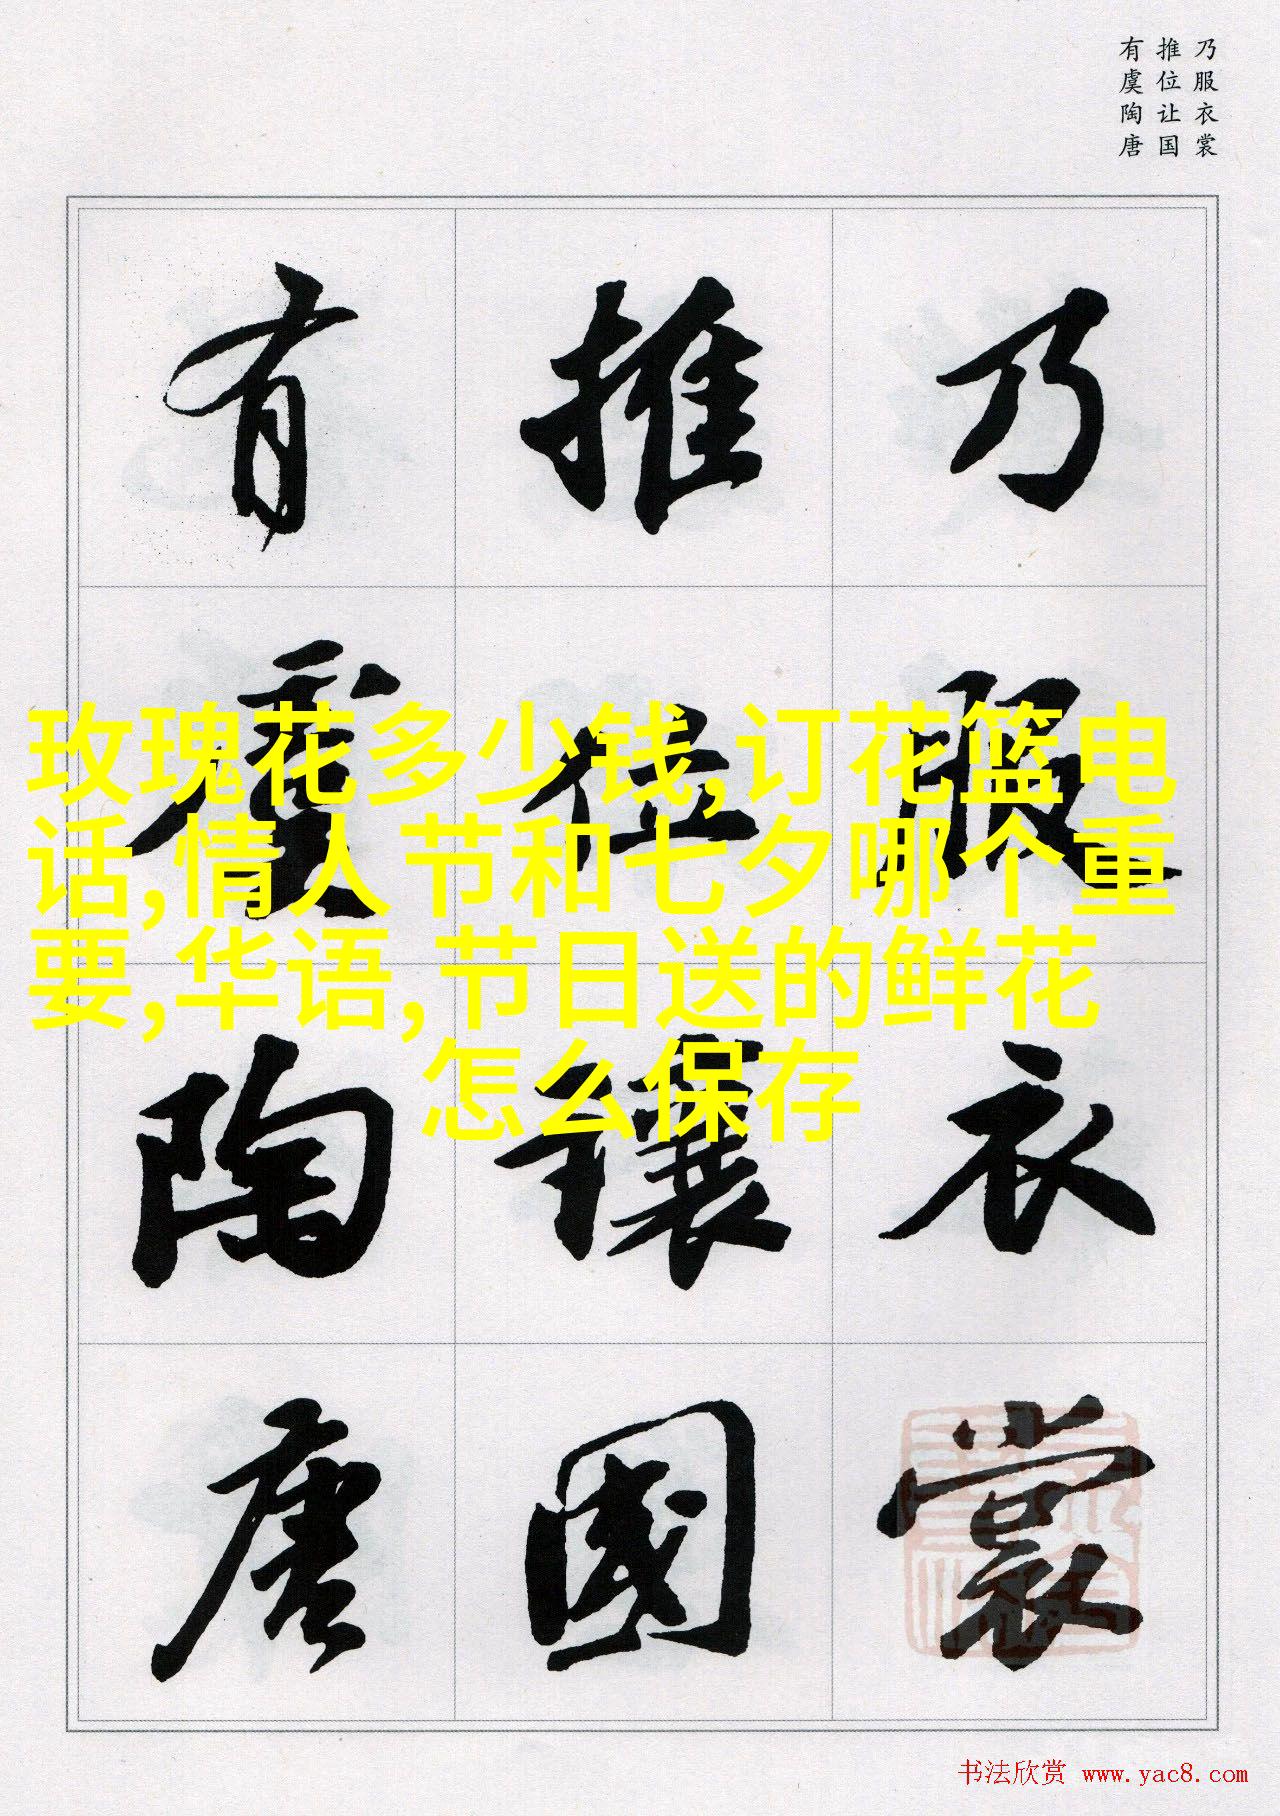 乃服衣裳
推位让国
有虞陶唐
乃服衣裳
推位讓國
有虞陶唐
玫瑰花多少钱,订花篮电
话,情人节和七夕哪个重
要,华语,节日送的鲜花
怎么保存
书法欣赏 www.yac8.com